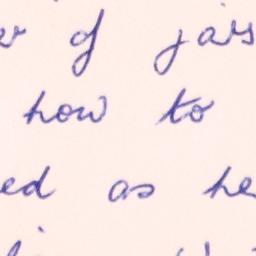 of jars
how to
ed as he